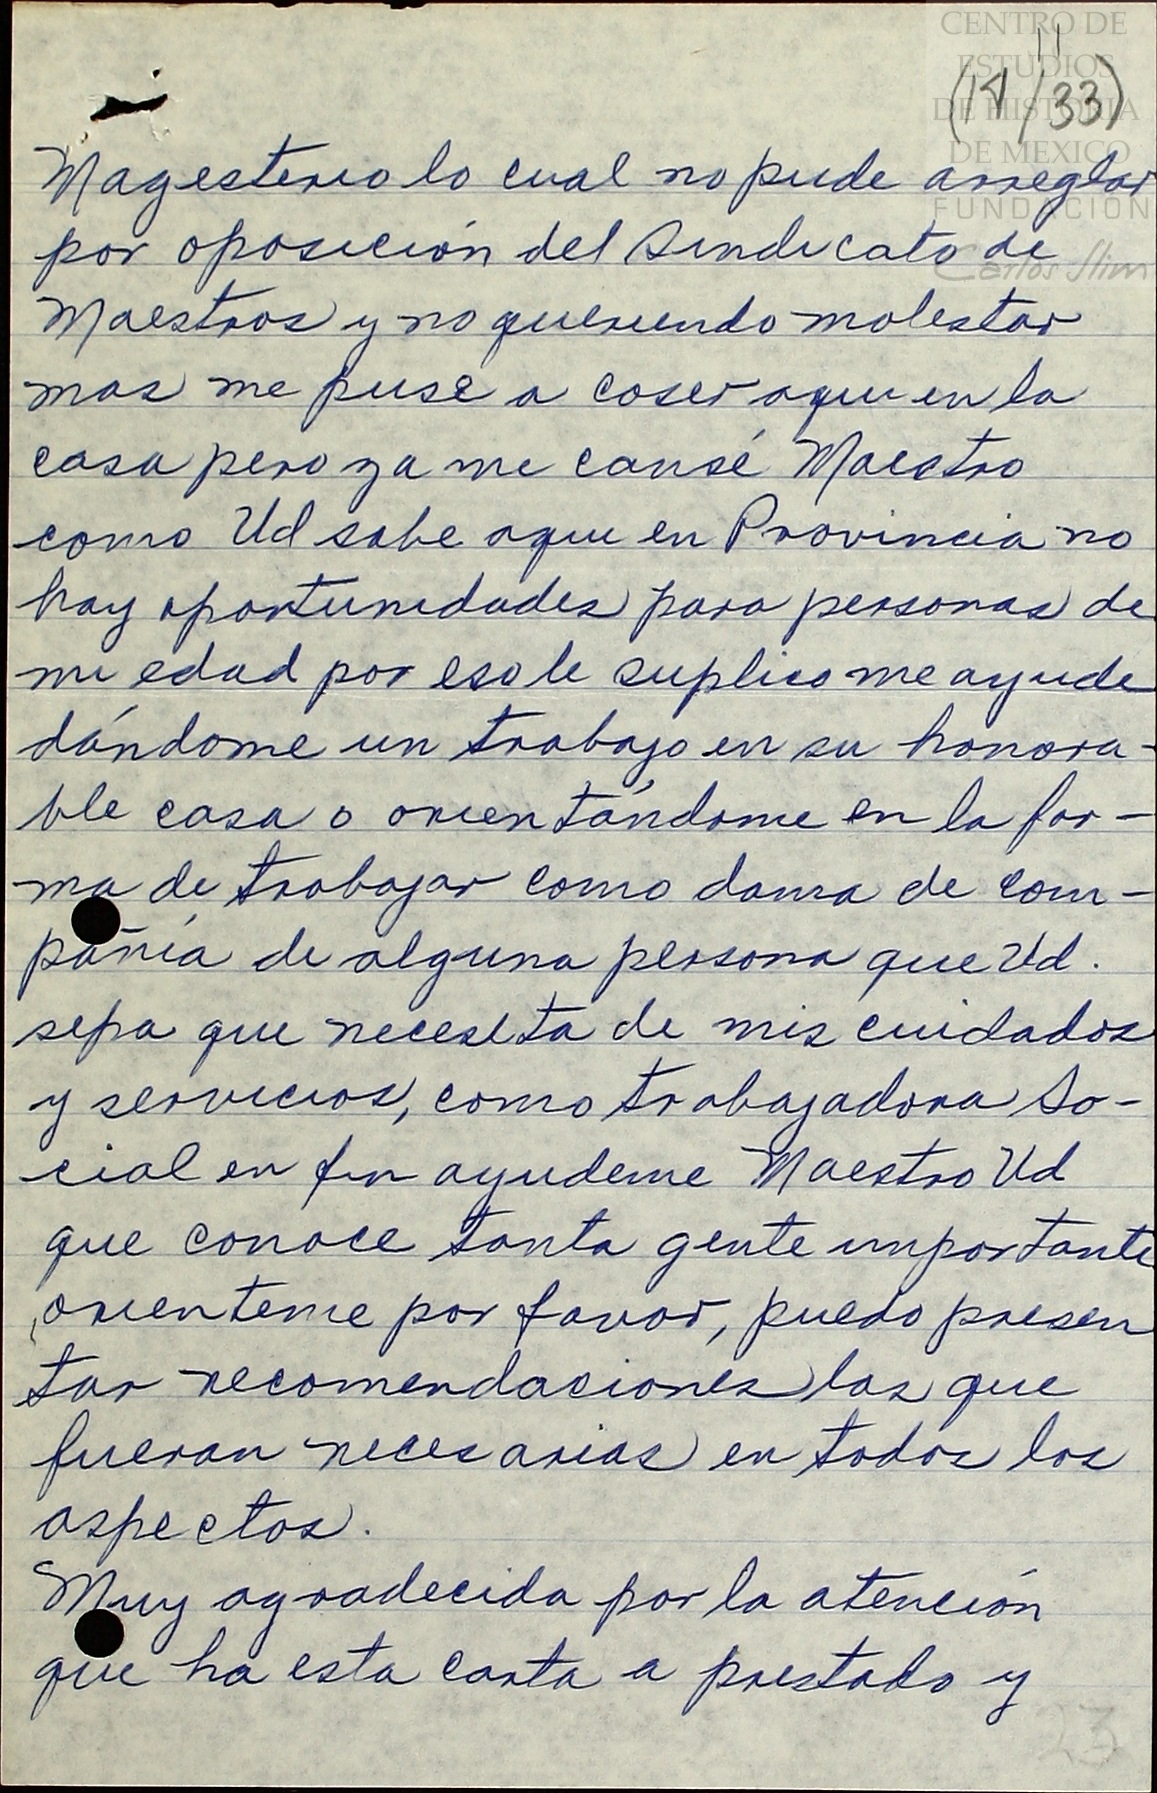 CENTRO DE
ESTUDIOS
DE HISTORIA
DE MEXICO
FUNDACIÓN
Carlos Slim
11
(14/33)
Magesterio lo cual no pude arreglar
por oposición del Sindicato de
Maestros y no queriendo molestar
mas me puse a coser aqui en la
casa pero ya me cansé Maestro
como Ud sabe aqui en Provincia no
hay oportunidades para personas de
mi edad por eso le suplico me ayude
dándome un trabajo en su honora-
ble casa o orientándome en la for-
ma de trabajar como dama de com-
pañia de alguna persona que Ud.
sepa que necesita de mis cuidados
y servicios, como trabajadora So-
cial en fin ayudeme Maestro Ud
que conoce tanta gente importante
orienteme por favor, puedo presen
tar recomendaciones las que
fueran necesarias en todos los
aspectos.
Muy agradecida por la atención
que ha esta carta a prestado y
23